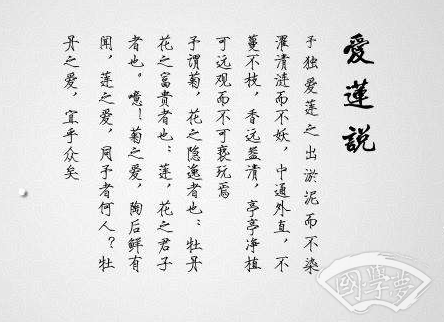 愛蓮說
予独爱莲之出淤泥而不染
濯清涟而不妖，中通外直，不
蔓不枝，香远益清，亭亭净植
可远观而不可亵玩焉
予谓菊，花之隐逸者也；牡丹
花之富贵者也；莲，花之君子
者也。噫！菊之爱，陶后鲜有
闻，莲之爱，同予者何人？牡
丹之爱，宜乎众矣
國學夢